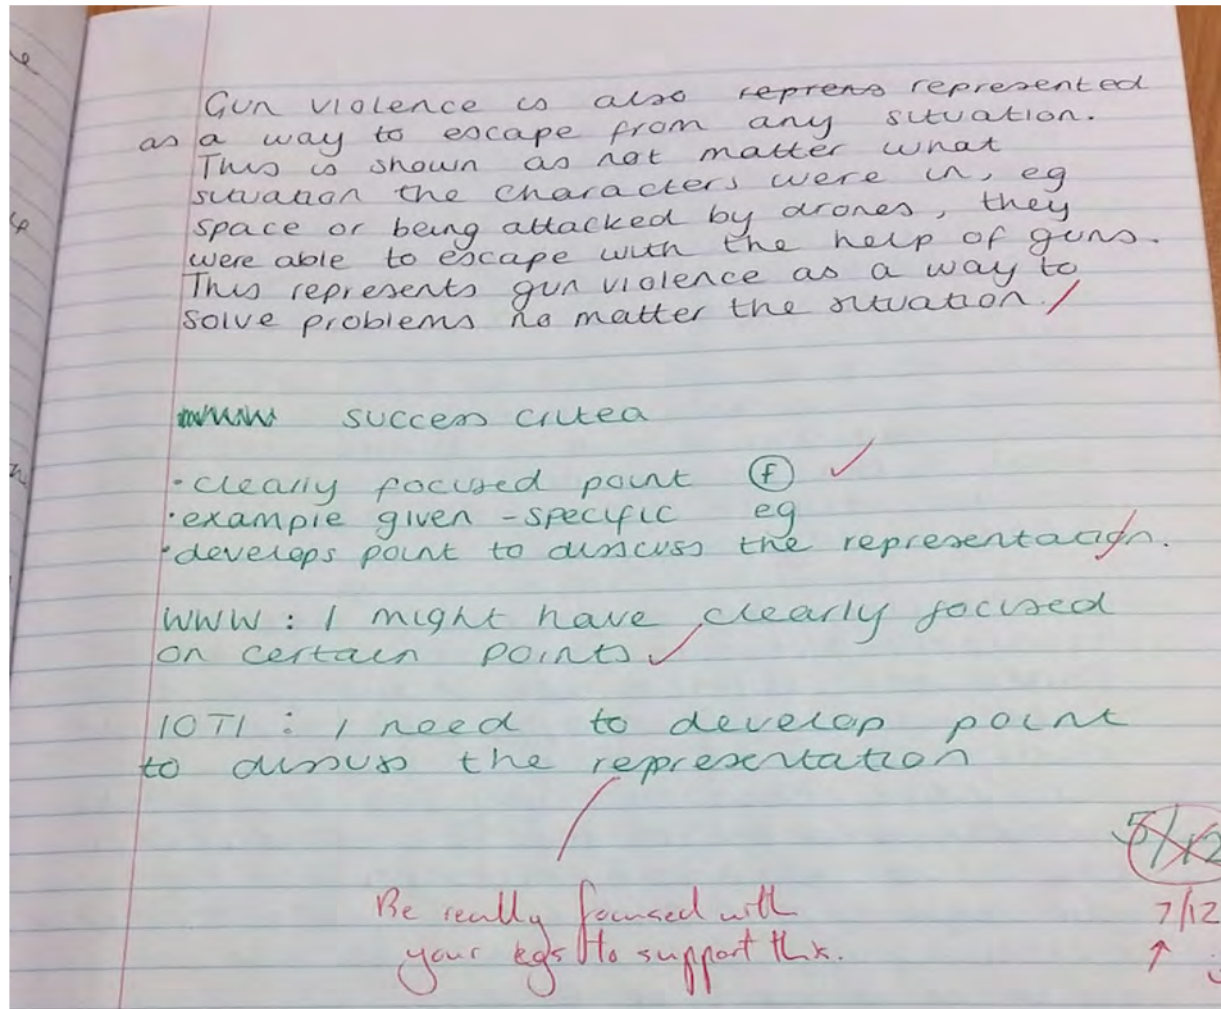 Gun violence is also reprens represented
as a way to escape from any situation.
This is shown as not matter what
situation the characters were in, eg
space or being attacked by drones, they
were able to escape with the help of guns.
This represents gun violence as a way to
solve problems no matter the situation.
success critea
• clearly focused point (f)
• example given - specific eg
• develops point to discuss the representation.
WWW : I might have clearly focused
on certain points
IOTI : I need to develop point
to disuss the representation
5/12
Be really focused with
7/12
your egs to support this.